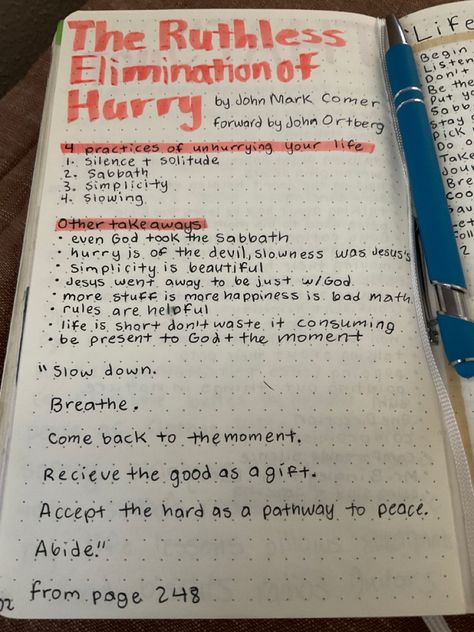 The Ruthless
Elimination of
Hurry by John Mark Comer
forward by John Ortberg
4 practices of unhurrying your life
1. Silence + solitude
2. Sabbath
3. Simplicity
4. Slowing
Other takeaways
• even God took the Sabbath
• hurry is of the devil, slowness was Jesus's
• simplicity is beautiful
• Jesus went away to be just w/God.
• more stuff is more happiness is bad math
• rules are helpful
• life is short don't waste it consuming
• be present to God + the moment
"Slow down.
Breathe.
Come back to the moment.
Recieve the good as a gift.
Accept the hard as a pathway to peace.
Abide."
from page 248
Life
Begin
Listen
Don't
Be the
Put yo
Sabb
Stay
pick
Do
Take
Jour
Brea
Coo